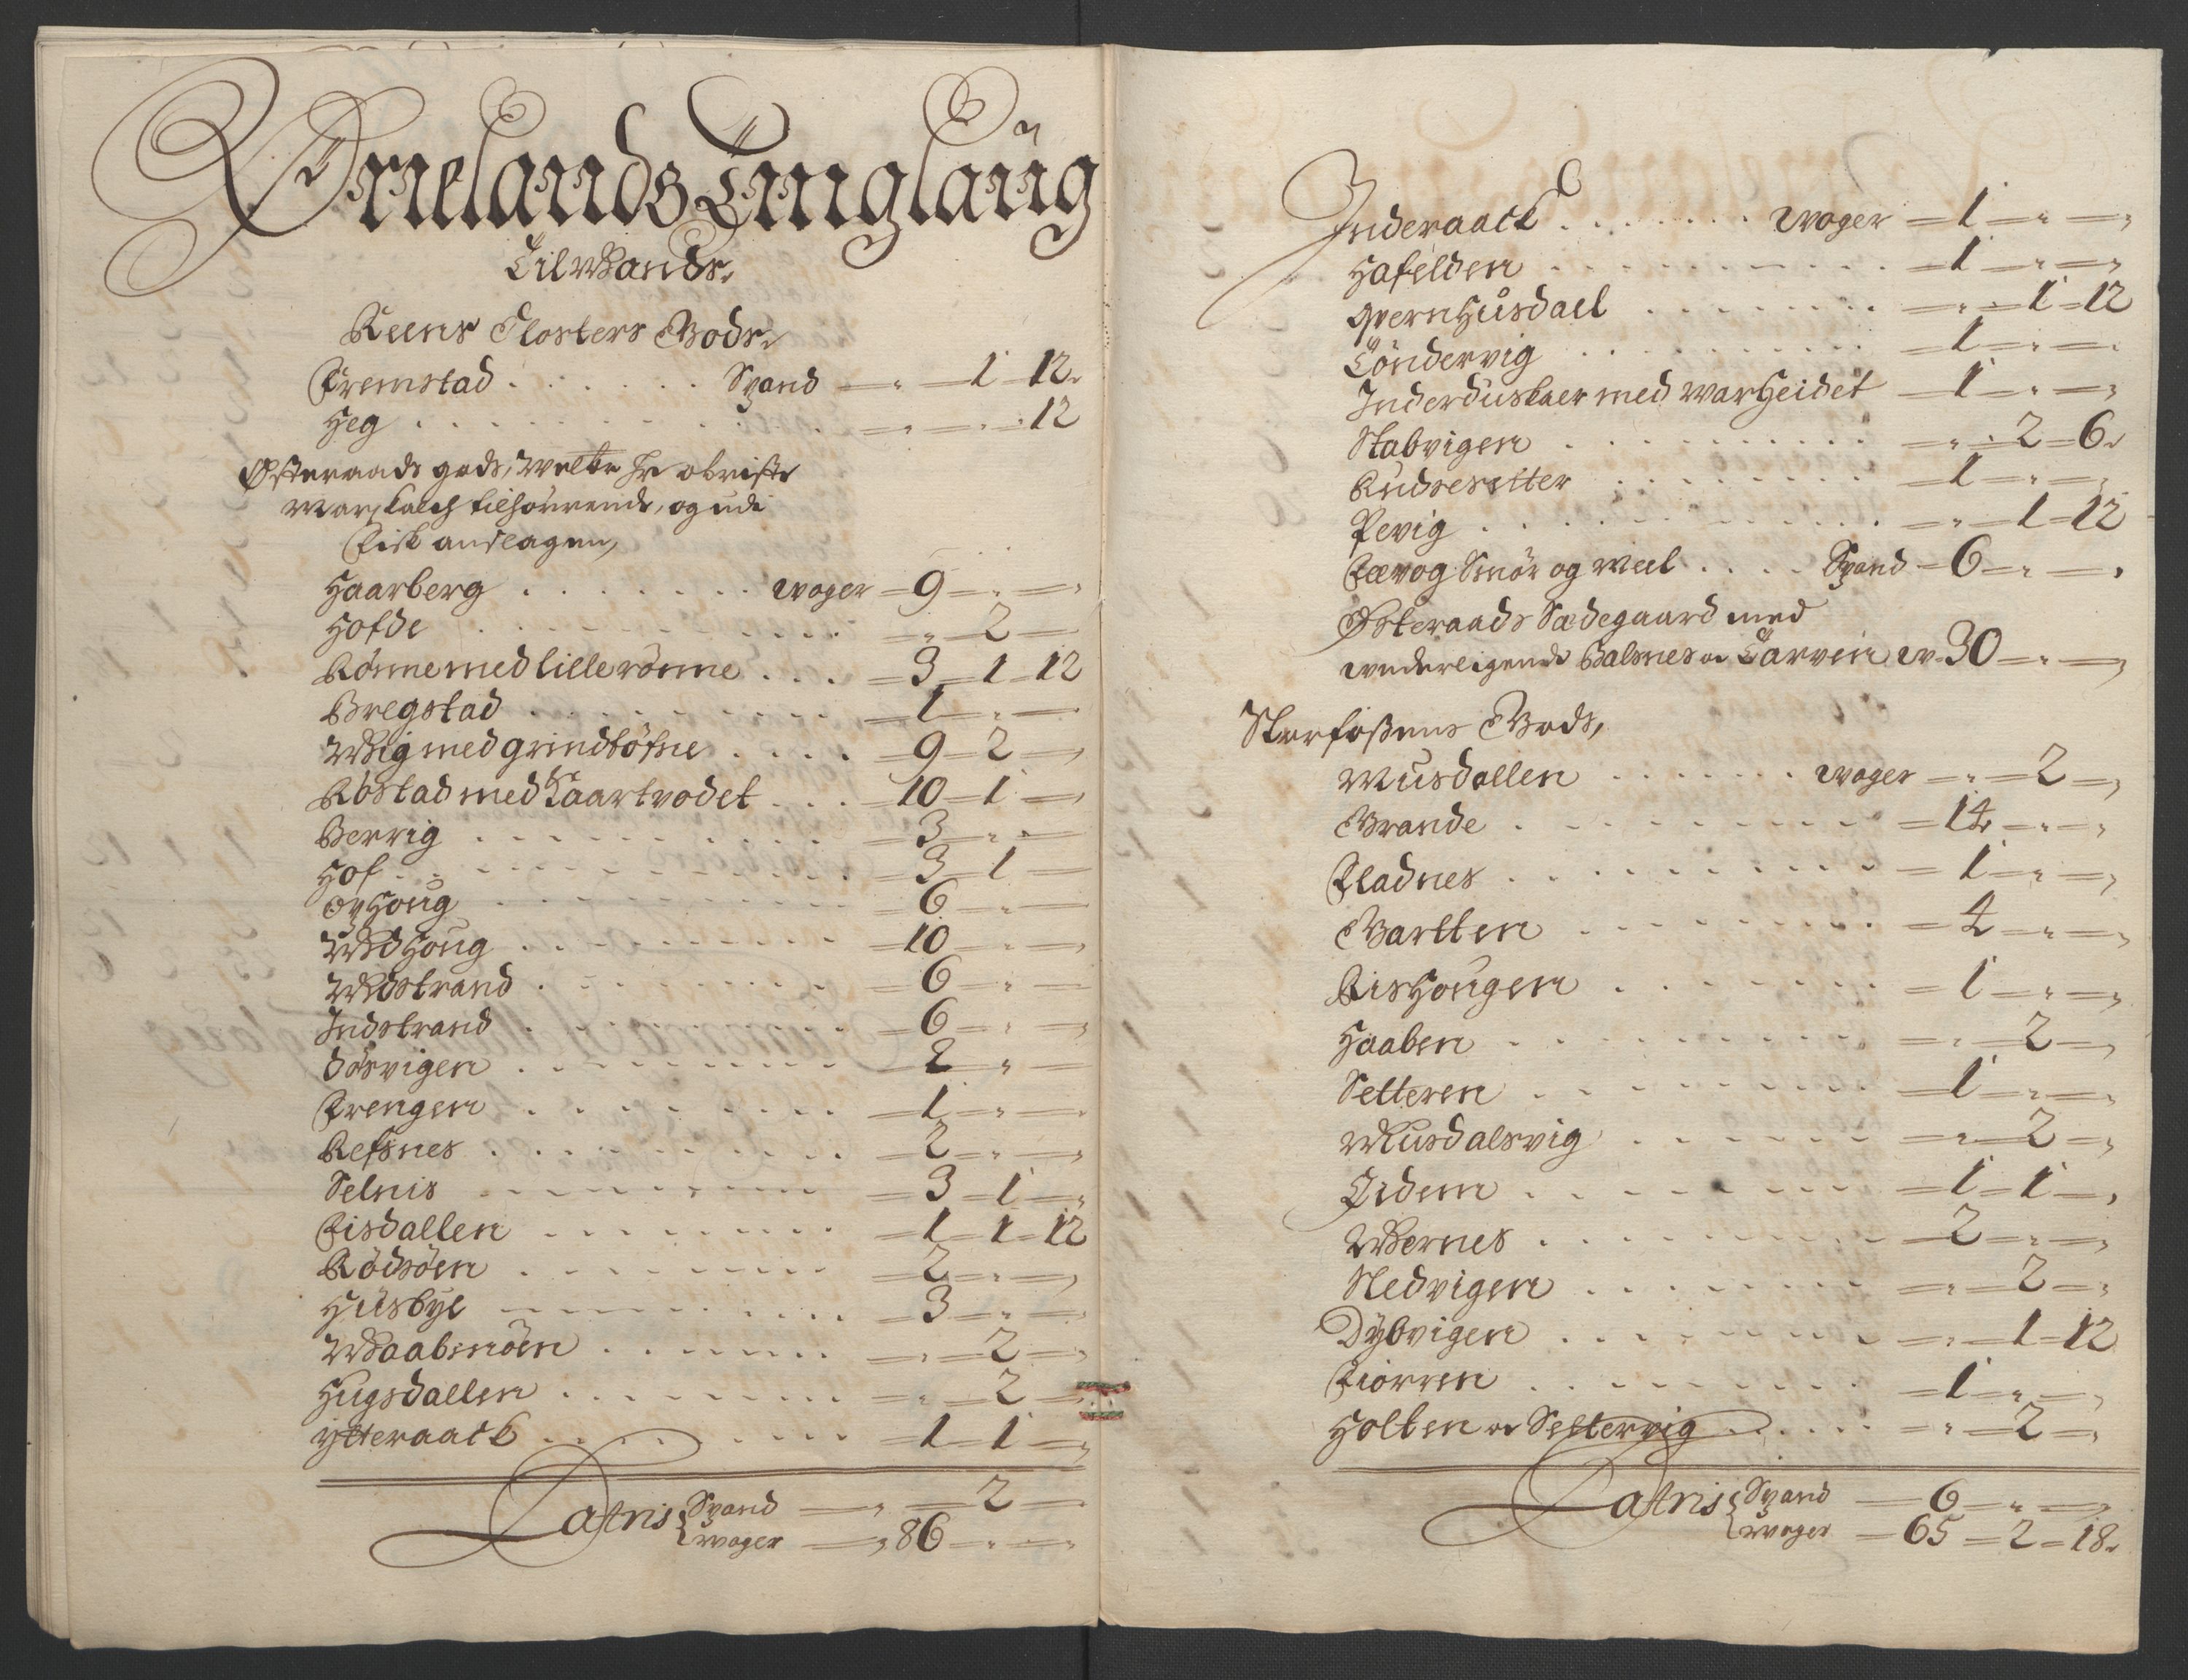 Ørelands Tinglaug
Tilwands.
Reens Closters Gods.
Fremstad . . . . . . Spand — „ — 1 — 12.
Heg . . . . . . . . . — „ — „ — 12
Østeraads gods, Welke Hr obrister
Marskalch tilhörrende, og udi
Fisk anslagen,
Haarberg . . . . . . . woger — 9 — „ —
Hofde . . . . . . . . — „ — 2 —
Rönne med lille rönne . . . — 3 — 1 — 12
Bregstad . . . . . . . . — 1 — „ —
Wiig med grindböfne . . . . — 9 — 2 —
Röstad med Kaartvodet . . . — 10 — 1 —
Berrig . . . . . . . . — 3 — „ —
Hof . . . . . . . . — 3 — 1 —
Ophoug . . . . . . . . — 6 — „ —
Udhoug . . . . . . . . — 10 — „ —
Udstrand . . . . . . . — 6 — „ —
Indstrand . . . . . . . — 6 — „ —
Dösvigen . . . . . . . — 2 — „ —
Frengen . . . . . . . . — 1 — „ —
Refsnes . . . . . . . . — 2 — „ —
Selnis . . . . . . . . — 3 — 1 — „
Fisdallen . . . . . . . — 1 — 1 — 12
Rödsöen . . . . . . . — 2 — „ —
Husbye . . . . . . . — 3 — „ —
Waabenöen . . . . . . — „ — 2 —
Hugsdallen . . . . . . — „ — 2 —
ytteraack . . . . . . . — 1 — 1 —
Latris Spand — „ — 2 —
woger — 86 — „ —
Inderaack . . . . . . . woger — 1 — „ —
Hafelden . . . . . . . . — 1 — „ —
Qvernhusdael . . . . . . — „ — 1 — 12
Töndervig . . . . . . . — 1 — „ —
Inderduskaer med warheidet — 1 — „ —
Stabvigen . . . . . . . — „ — 2 — 6.
Rudsesetter . . . . . . — 1 — „ —
Pevig . . . . . . . . — „ — 1 — 12
Fævog Smör og Meel . . . . Spand — 6 — „ —
Østeraads Sædegaard med
underligende Balsnes oc Tarven w — 30 — „ —
Storfoßens Gods,
Musdallen . . . . . . . woger — „ — 2 —
Grande . . . . . . . . — 14 — „ —
Fladnes . . . . . . . . — 1 — „ —
Gartten . . . . . . . . — 4 — „ —
Rishougen . . . . . . . — 1 — „ —
Haaben . . . . . . . . — „ — 2 —
Setteren . . . . . . . — 1 — „ —
Musdalsvig . . . . . . — „ — 2 —
Lidem . . . . . . . . — 1 — 1 —
Wernes . . . . . . . . — 2 — „ —
Nedvigen . . . . . . . — „ — 2 —
Dybvigen . . . . . . . — „ — 1 — 12
Fiorren . . . . . . . — 1 — „ —
Holten oc Settervig . . . . — „ — 2 —
Latris Spand — 6 — „ —
woger — 65 — 2 — 18.